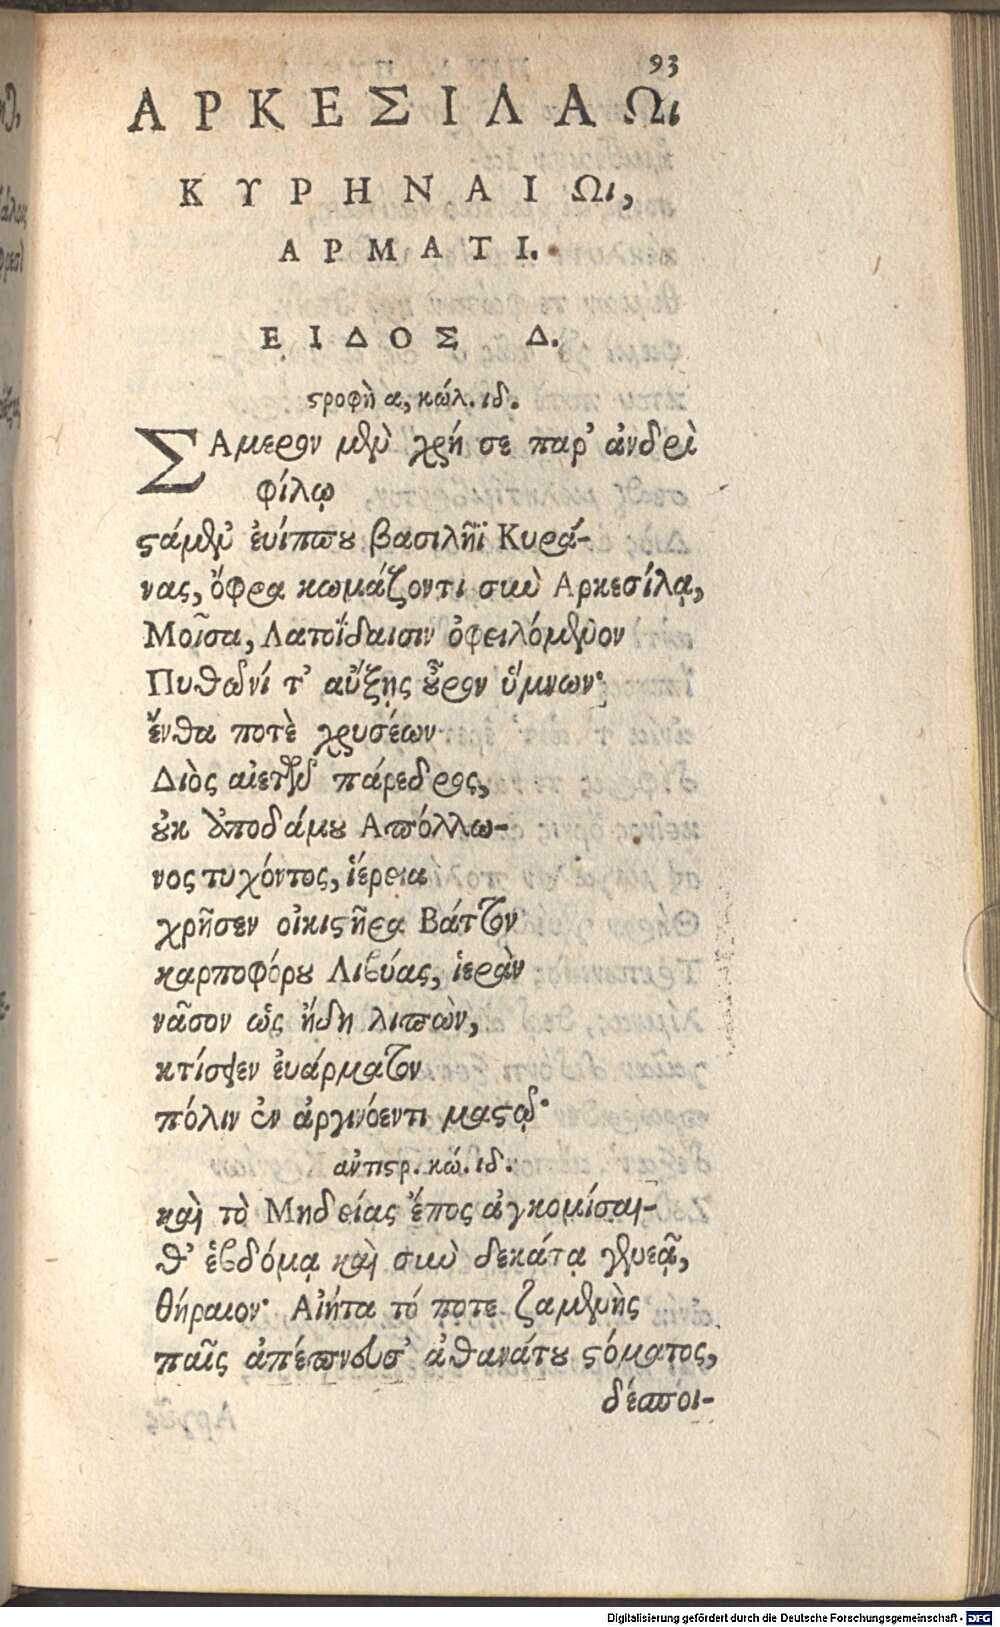 93
ΑΡΚΕΣΙΛΑΩι
ΚΥΡΗΝΑΙΩι,
ΑΡΜΑΤΙ.
ΕΙΔΟΣ Δ.
ϛροφὴ α, κώλ. ιδ.
ΣΑμερον μὲν χρή σε παρ' ἀνδρὶ
φίλῳ
ϛάμεν ἐυίππου βασιλῆϊ Κυρά-
νας, ὄφρα κωμάζοντι σὺν Αρκεσίλᾳ,
Μοῖσα, Λατοΐδαισιν ὀφειλόμενον
Πυθῶνί τ' αὔξῃς οὖρον ὕμνων·
ἔνθα ποτὲ χρυσέων
Διὸς αἰετῶν πάρεδρος,
οὐκ ἀποδάμου Απόλλω-
νος τυχόντος, ἱέρεια
χρῆσεν οἰκιϛῆρα Βάττον
καρποφόρου Λιβύας, ἱερὰν
νᾶσον ὡς ἤδη λιπὼν,
κτίσσεν ἐυάρματον
πόλιν ἐν ἀργινόεντι μαϛῷ·
ἀντιϛρ. κώ. ιδ.
καὶ τὸ Μηδείας ἔπος ἀγκομίσαι-
θ' ἑβδόμᾳ καὶ σὺν δεκάτᾳ γενεᾷ,
θήραιον· Αἰήτα τό ποτε ζαμενὴς
παῖς ἀπέπνευσ' ἀθανάτου ϛόματος,
δέσποι-
Digitalisierung gefördert durch die Deutsche Forschungsgemeinschaft - DFG